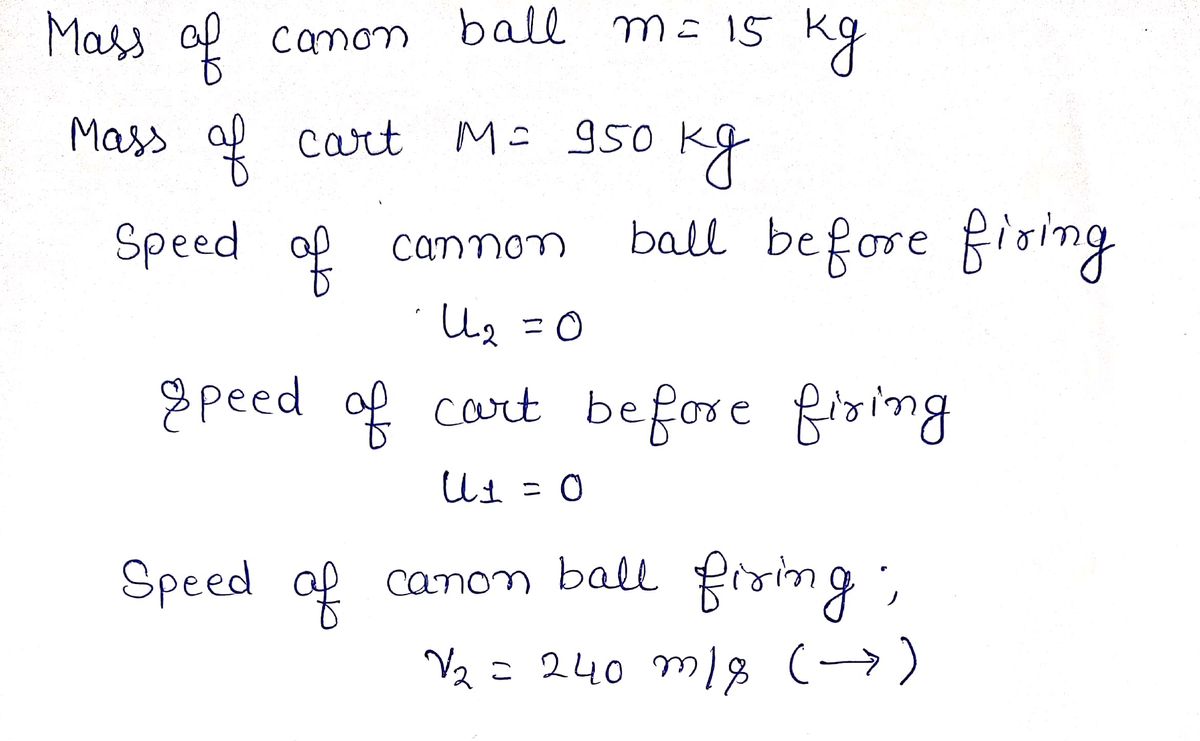 Mass of canon ball m = 15 kg
Mass of cart M = 950 kg
Speed of cannon ball before firing
U₂ = 0
Speed of cart before firing
U1 = 0
Speed of canon ball firing;
V₂ = 240 m/s (→)